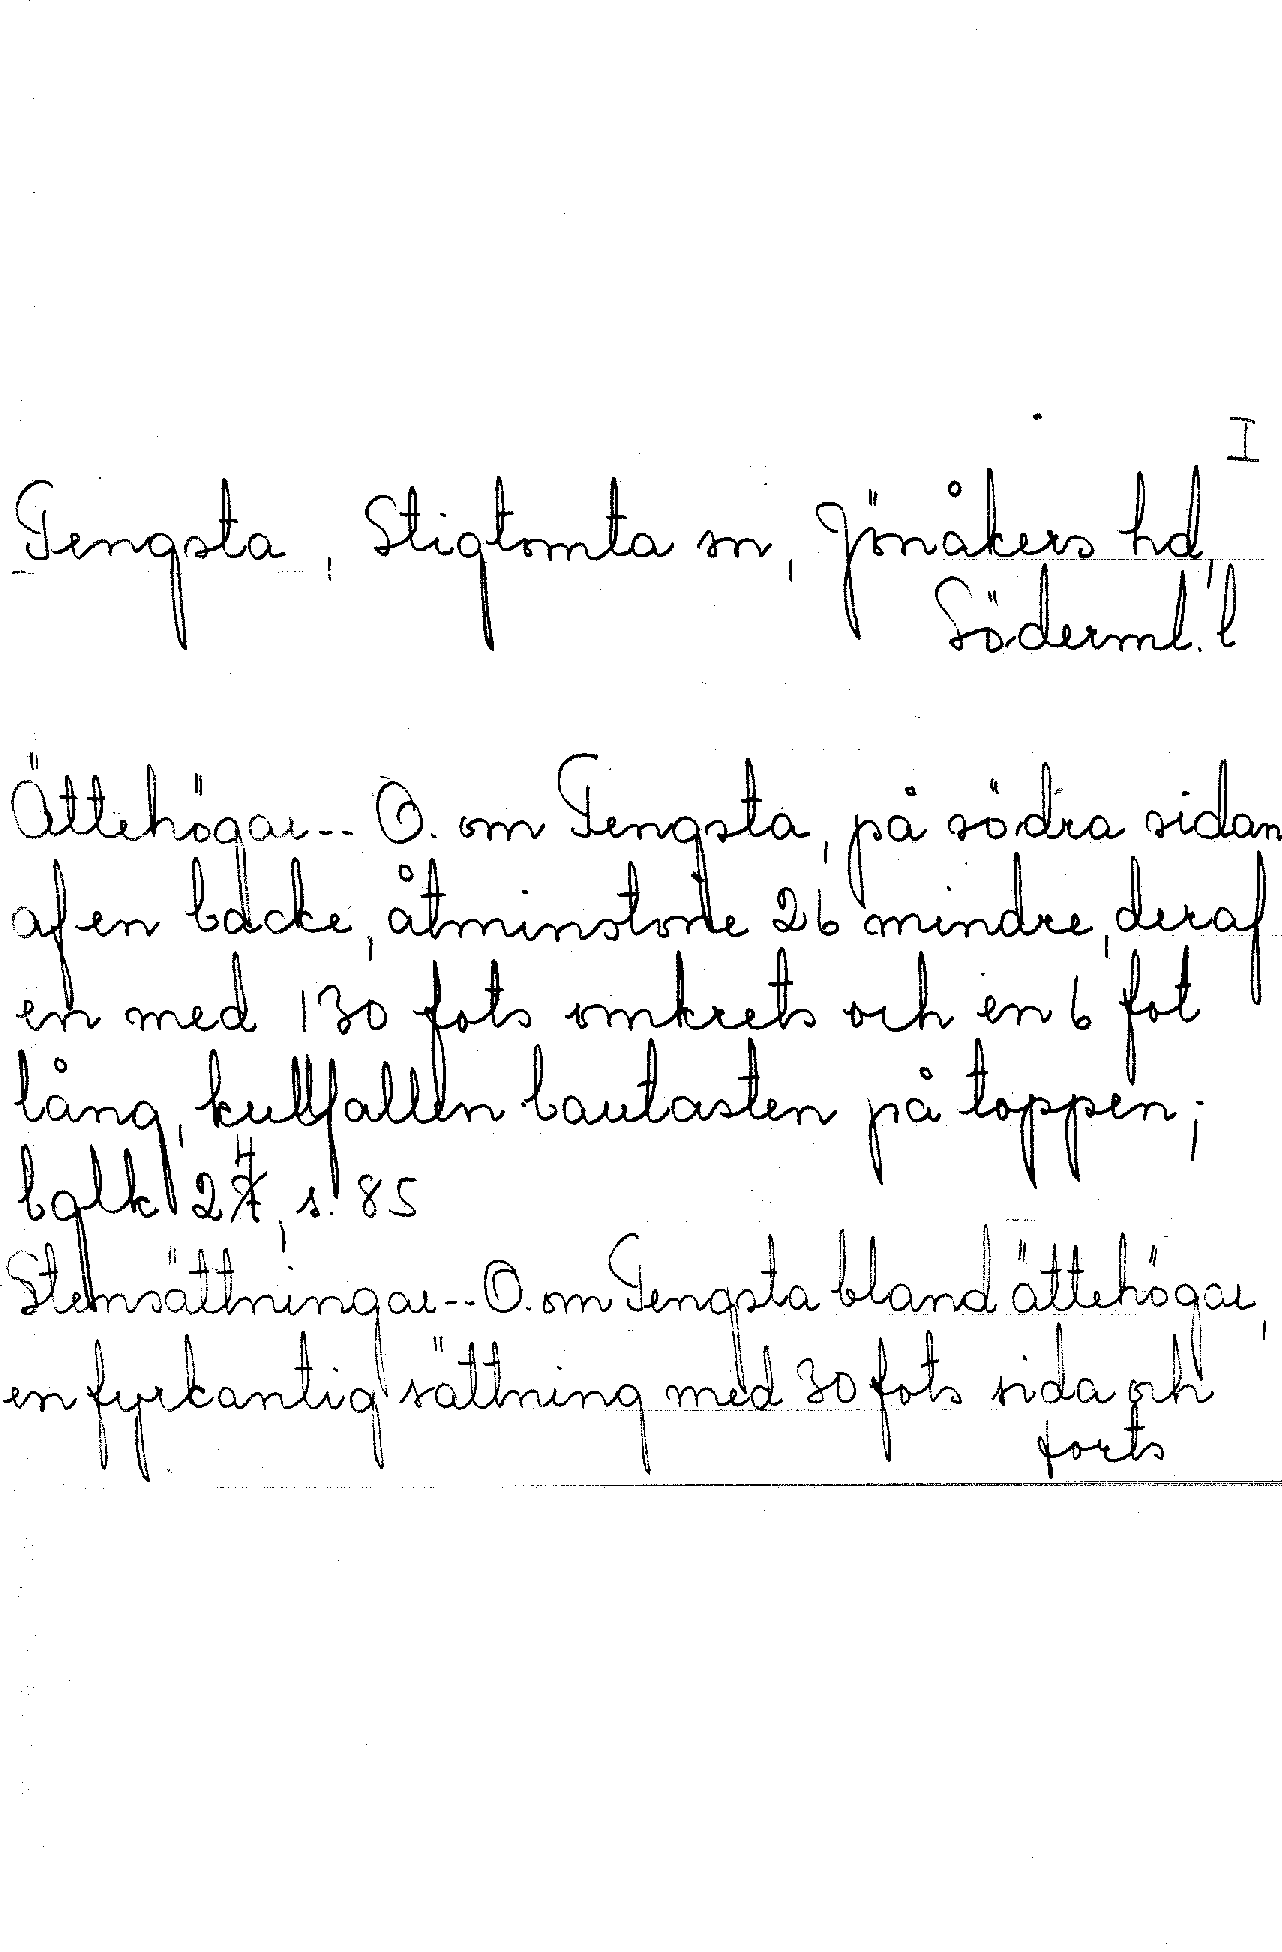 I
Tengsta, Stigtomta sn, Jönåkers hd,
Söderml. l
Ättehögar -- O. om Tengsta, på södra sidan
af en backe, åtminstone 26 mindre, deraf
en med 130 fots omkrets och en 6 fot
lång, kullfallen bautasten på toppen;
balk 24, s. 85
Stensättningar -- O. om Tengsta bland ättehögar,
en fyrkantig sättning med 30 fots sida och
forts